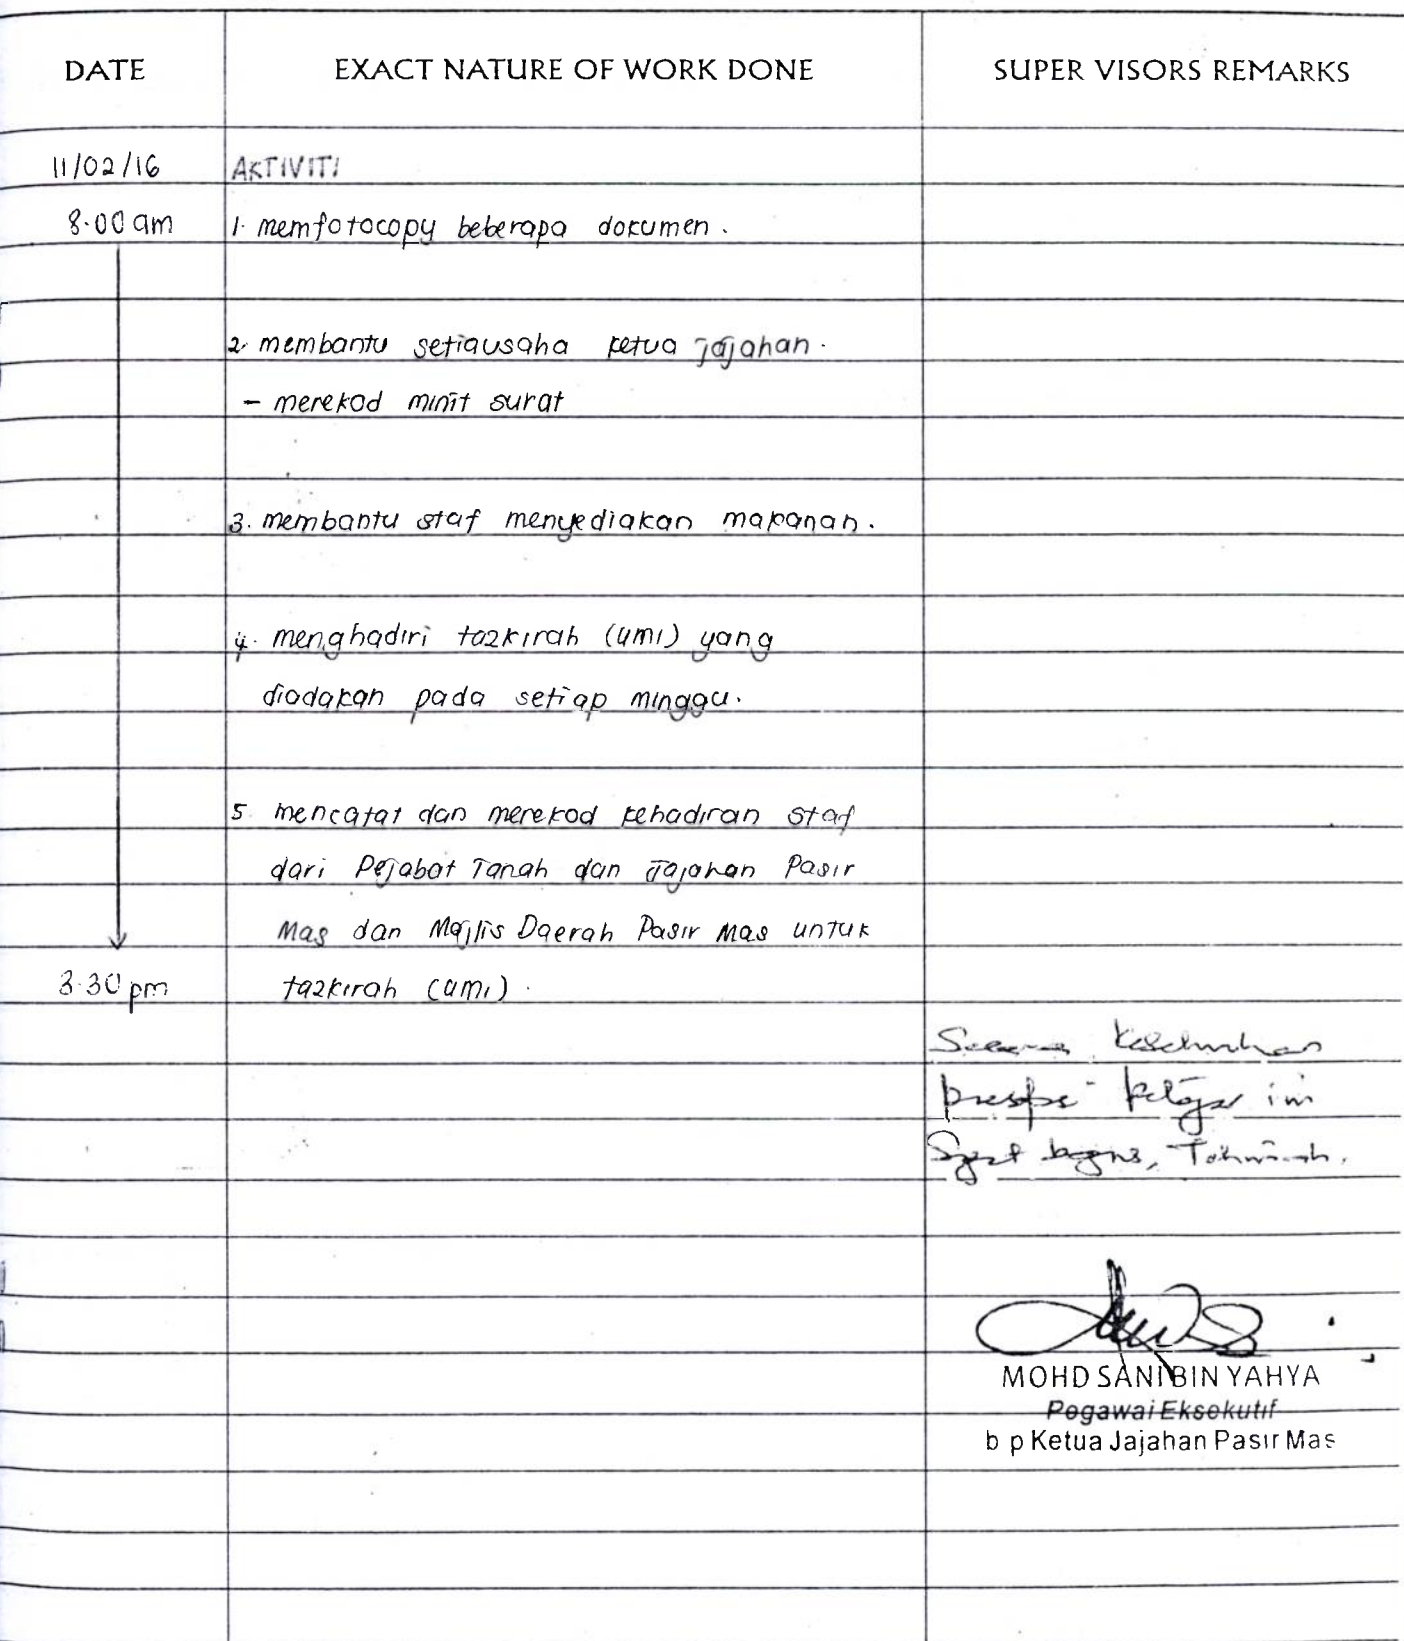 DATE EXACT NATURE OF WORK DONE SUPER VISORS REMARKS
11/02/16 AKTIVITI
8.00 am 1. memfotocopy beberapa dokumen.
2. membantu setiausaha ketua jajahan.
- merekod minit surat
3. membantu staf menyediakan makanan.
4. menghadiri tazkirah (umi) yang
diadakan pada setiap minggu.
5. mencatat dan merekod kehadiran staf
dari Pejabat Tanah dan Jajahan Pasir
Mas dan Majlis Daerah Pasir Mas untuk
3.30 pm tazkirah (umi).
Secara keseluruhan
pelajar ini
bagus, Tahniah.
MOHD SANI BIN YAHYA
Pegawai Eksekutif
b p Ketua Jajahan Pasir Mas